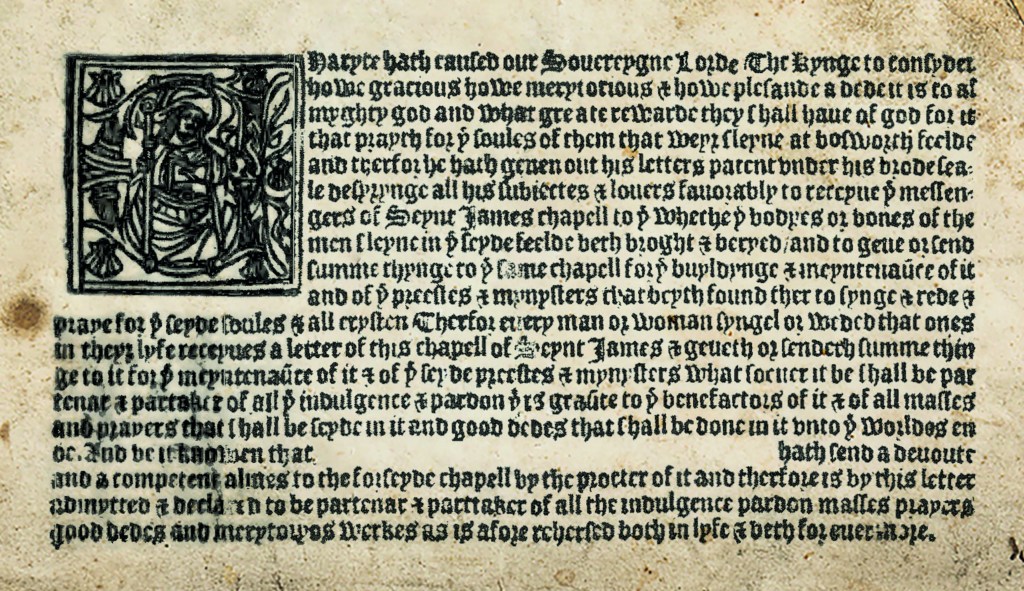 Haryte hath caused our Souereygne Lorde The kynge to consyder
howe gracious howe merytorious & howe plesande a dede it is to al
myghty god and what greate rewarde they shall haue of god for it
that prayth for yͤ soules of them that weyr sleyne at bosworth feelde
and therfor he hath geuen out his letters patent vnder his brode sea-
le desyrynge all his subiectes & louers fauorably to receyue yͤ messen-
gers of Seynt James chapell to yͤ whethe yͤ bodyes or bones of the
men sleyne in yͤ seyde feelde beth broght & beryed/and to geue or send
summe thynge to yͤ same chapell for yͤ buyldynge & meyntenaūce of it
and of yͤ preestes & mynysters that beyth found ther to synge & rede &
praye for yͤ seyde soules & all crysten Therfor euery man or woman syngel or weded that ones
in theyr lyfe receyues a letter of this chapell of Seynt James & geueth or sendeth summe thin
ge to it for yͤ meyntenaūce of it & of yͤ seyde preestes & mynysters what soeuer it be shall be par
tenar & parttaker of all yͤ indulgence & pardon yͭ is graūte to yͤ benefactors of it & of all masses
and prayers that shall be seyde in it and good dedes that shall be done in it vnto yͤ worldes en
de. And be it knowen that hath send a deuoute
and a competent almes to the forseyde chapell by the procter of it and therfore is by this letter
admytted & declared to be partenar & parttaker of all the indulgence pardon masses prayers
good dedes and merytoryos werkes as is afore rehersed both in lyfe & deth for euermore.